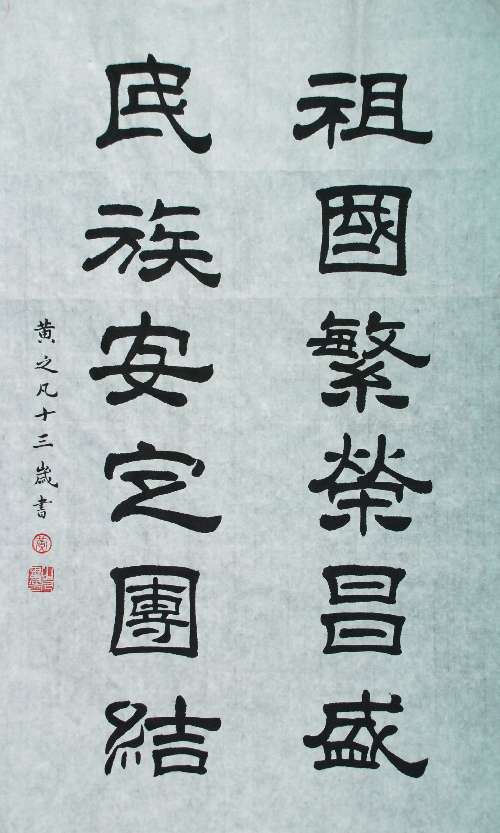 祖國繁榮昌盛
民族安定團結
黄之凡十三歲書
黄